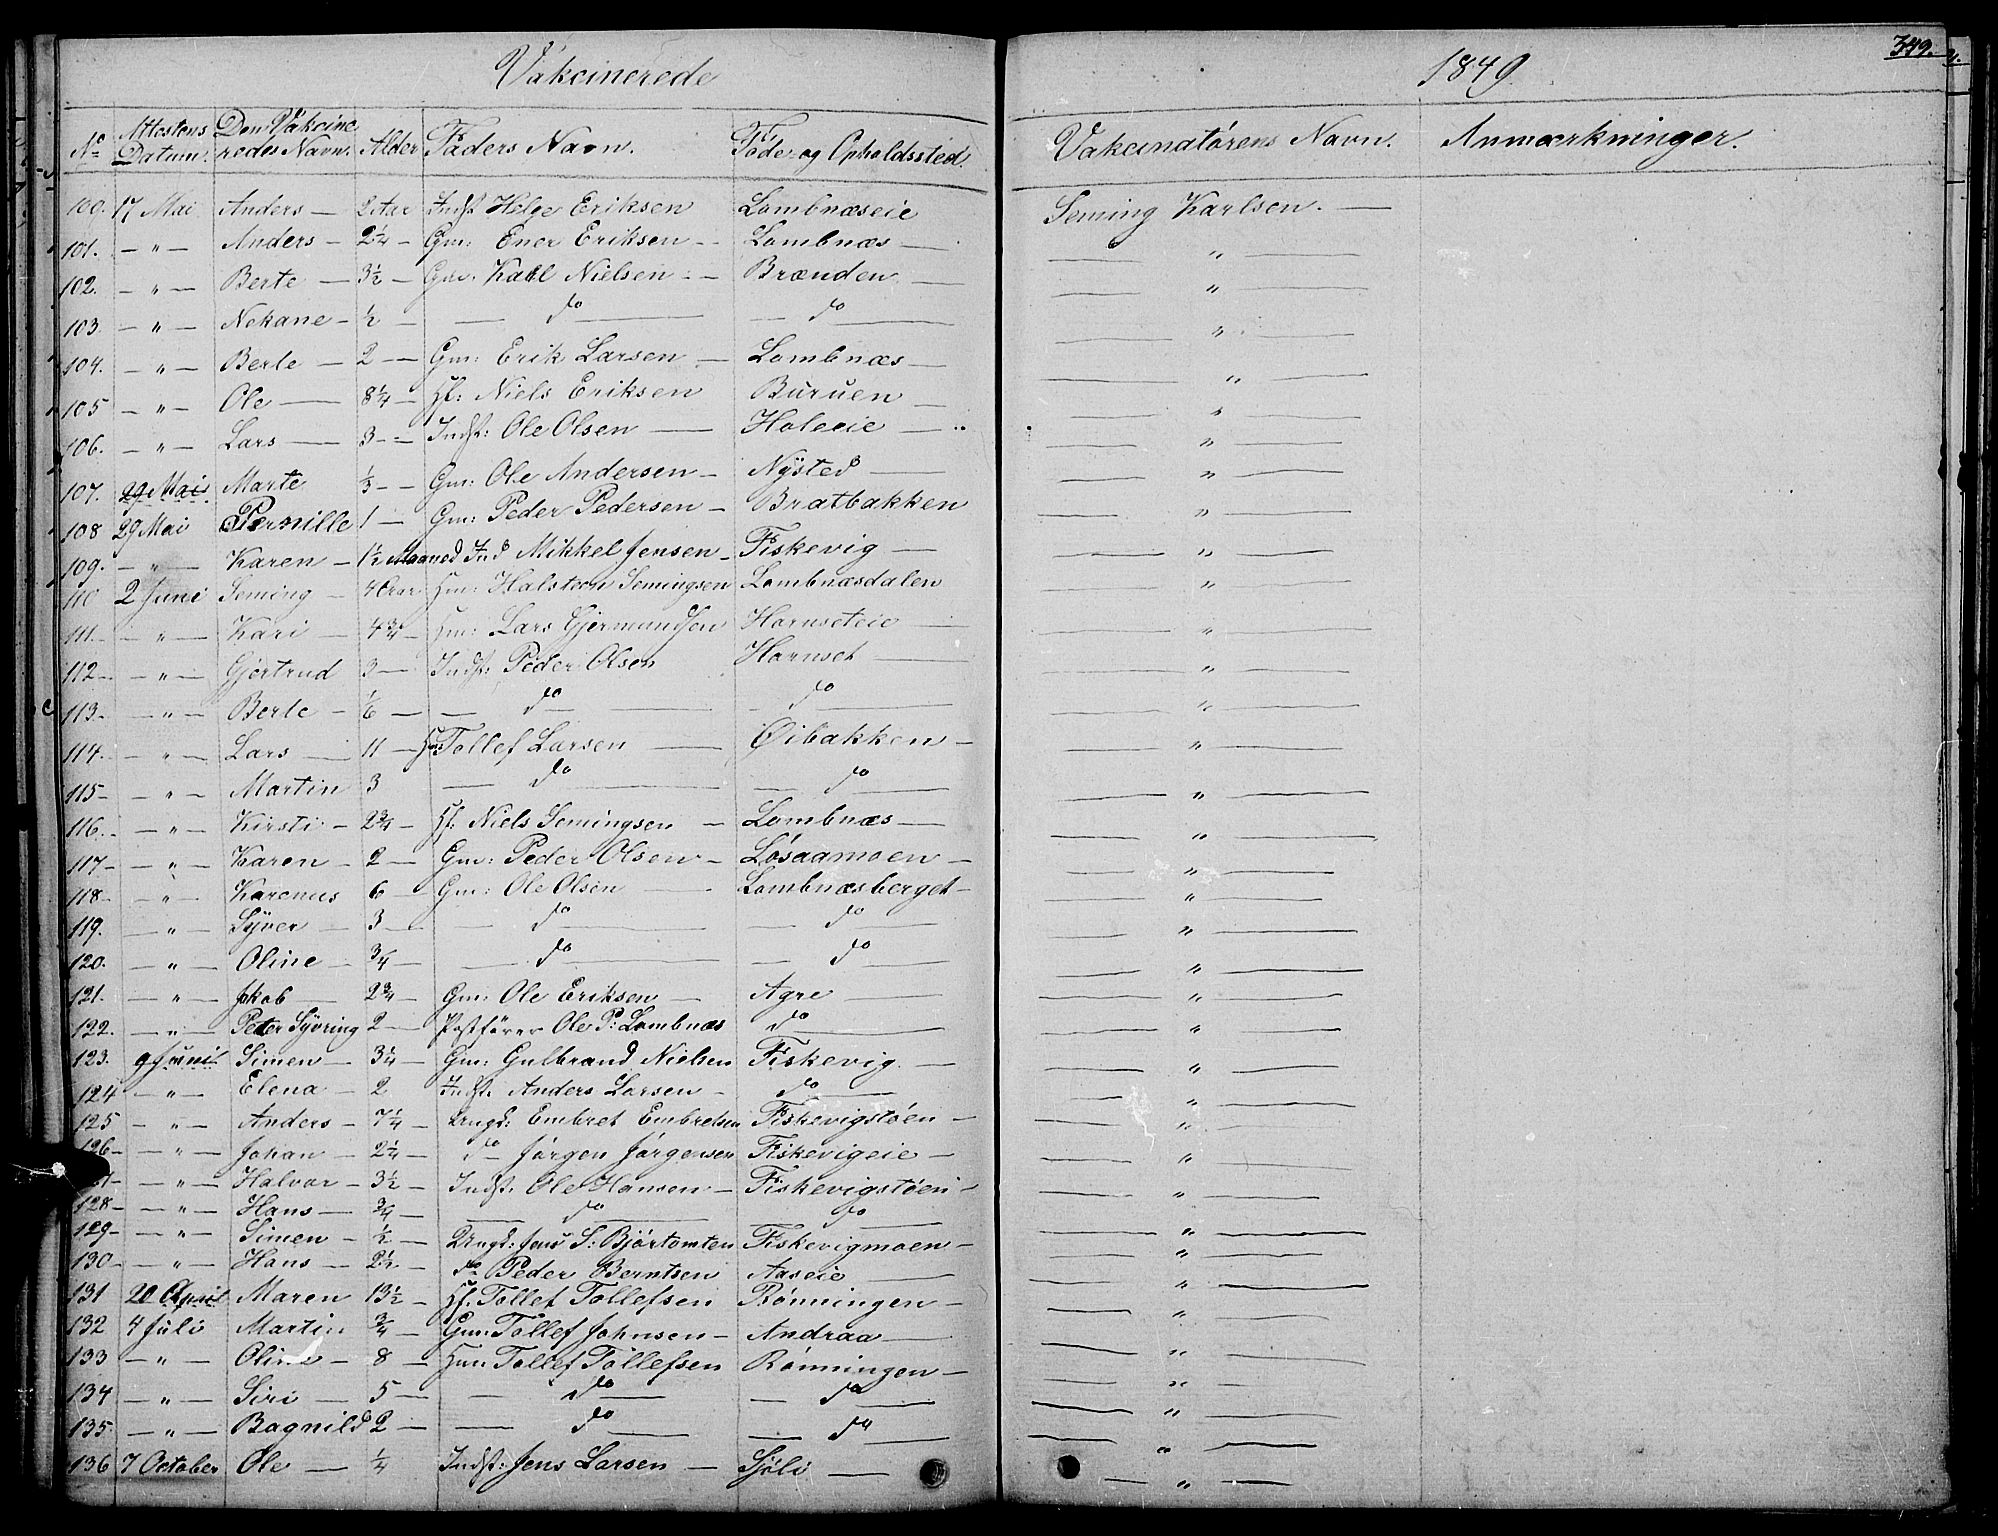 Vakcinerede
1849
349.
No Attestens Datum. Den Vakcineredes Navn. Alder Faders Navn. Føde- og Opholdssted. Vakcinatørens Navn. Anmærkninger.
100. 17 Mai Anders — 2 Aar Indst Helge Eriksen Lombnæseie Seming Karlsen. —
101. — " — Anders — 2 1/4 — Gm: Ener Eriksen — Lombnæs — — " —
102. — " — Berte — 3 1/2 — Gm: Karl Nielsen — Brænden — — " —
103. — " — Nekane — 1/2 — — do — — do — — " —
104. — " — Berte — 2 — Gm: Erik Larsen — Lombnæs — — " —
105 — " — Ole — 8 1/4 — Hf: Niels Eriksen Buruen — — " —
106. — " — Lars — 3 — Indst: Ole Olsen — Holeeie — — " —
107. 29 Mai Marte 1/3 — Gm: Ole Andersen — Nÿsted — — " —
108 29 Mai Pernille 1 — Gm: Peder Pedersen — Bratbakken — " —
109. — " — Karen — 1 1/2 Maaned Ind Mikkel Jensen — Fiskevig — — " —
110 2 Juni Seming — 4 Aar Hm: Halsten Semingsen Lombnæsdalen — " —
111. — " — Kari — 4 3/4 — Hm: Lars Gjermundsen Harnseteie — — " —
112 — — " — Gjertrud 3 — Indst: Peder Olsen Harnset — — " —
113. — " — Berte — 1/6 — — do — — do — — " —
114. — " — Lars — 11 — Hm: Tollef Larsen — Øibakken — — " —
115 — — " — Martin 3 — do — — do — — " —
116. — " — Kirsti — 2 3/4 — Hf: Niels Semingsen — Lombnæs — — " —
117 — — " — Karen — 2 — Gm: Peder Olsen — Løsaamoen — — " —
118 — — " — Karenus 6 — Gm: Ole Olsen — Lombnæsberget — — " —
119. — " — Sÿver — 3 — — do — — do — — " —
120. — " — Oline — 3/4 — — do — — do — — " —
121. — " — Jakob — 2 3/4 — Gm: Ole Eriksen — Agre — — " —
122. — " — Peter Sÿvring 2 — Postfører Ole P: Lombnæs do — — " —
123. 9 Juni Simen — 3 1/4 — Gm: Gulbrand Nielsen Fiskevig. — — " —
124 — " — Elena — 2 Indst: Anders Larsen — do — — " —
125 — " — Anders — 7 1/4 — Ungk: Embret Embretsen Fiskevigstøen — — " —
126 — — " — Johan — 2 1/4 — do Jørgen Jørgensen Fiskevigeie — — " —
— " — Halvor — 3 1/2 — Indst: Ole Hansen — Fiskevigstøen — — " —
128 — — " — Hans — 3/4 — — do — do — — " —
129 — — " — Simen — 1/2 — Ungk: Jens S: Bjørtomten Fiskevigmoen — — " —
130 — — " — Hans — 2 1/2 — do Peder Berntsen Aaseie — — " —
131 20 April Maren 13 1/2 — Hf: Tollef Tollefsen Rønningen — — " —
132 4 Juli Martin 3/4 — Gm: Tollef Johnsen — Andraa — — " —
133 — " — Oline — 8 — Hm: Tollef Tollefsen Rønningen — — " —
134 — " — Siri — 5 — — do — — do — — " —
135. — " — Bagnild 2 — — do — — do — — " —
136 7 October Ole — 1/4 Indst: Jens Larsen — Sjøli — — " —